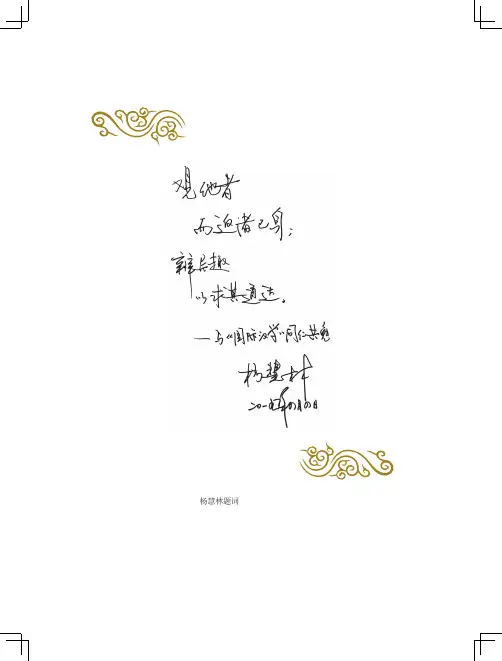 观他者
而返诸己身；
辩异趣
以求其通达。
——与《国际汉学》同仁共勉
杨慧林
二〇一四年四月四日
杨慧林题词